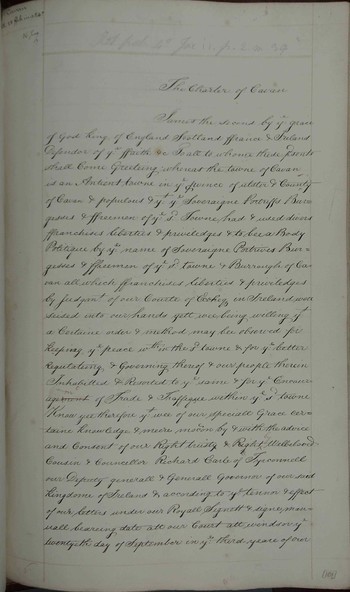 The Charter of Cavan
James the second by yᵉ grace
of God King of England Scotland ffrance & Ireland
Defendor of yᵉ ffaith &c To all to whome these pʳsents
shall Come Greeting whereas the towne of Cavan
is an Antient towne in yᵉ pʳvince of ulster & County
of Cavan & populous & yᵗ yᵉ Soveraigne Portriffs Bur
gesses & ffreemen of yᵉ sᵈ Towne, had & used divers
ffranchises liberties & priviledges & to be a Body
Politique by yᵉ name of Soveraigne Portrives Bur-
gesses & ffreemen of yᵉ sᵈ towne & Burrough of Ca-
van all which ffranchises liberties & priviledges
by judgmᵗ of our Courte of Exchqʳ in Ireland were
seised into our hands yett wee being willing yᵗ
a Certaine order & method may be observed for
Keeping yᵉ peace wᵗʰin the sᵈ towne & for yᵉ better
regulateing & Governing thereof & our people therein
Inhabitted & Resorted to yᵉ same & for yᵉ Encour-
agement of Trade & Traffique within yᵉ sᵈ towne
Know yee therefore yᵗ wee of our speciall Grace cer-
taine knowledge & meere motion by & with the advice
and Consent of our Right trusty & Right Welbeloved
Cousin & Councellor Richard Earle of Tyrconnell
our Deputy generall & Generall Governor of our said
Kingdome of Ireland & according to yᵉ tennor & effect
of our letters under our Royall Signett & signe man-
uall beareing date att our Court att windsor yᵉ
twentyeth day of September in yᵉ third yeare of our